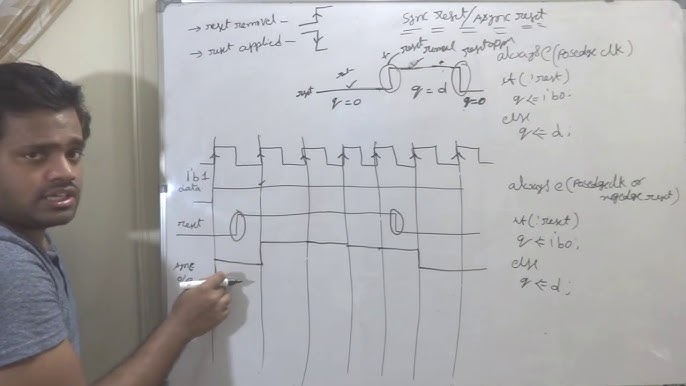 sync reset / Async reset
→ reset removel –
→ reset applied –
reset removel
reset appli
rst
reset
q=0
q=d
q=0
always @(posedge clk)
if(!reset)
q <= 1'b0;
else
q <= d;
1'b1
data
reset
sync
o/p
always @(posedge clk or
negedge reset)
if(!reset)
q <= 1'b0;
else
q <= d;